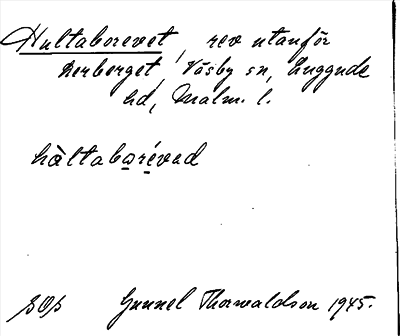 Hultaborevet, rev utanför
Lerberget, Väsby sn, Luggude
hd, Malm. l.
hàltabarévad
Gunnel Thorwaldson 1945.